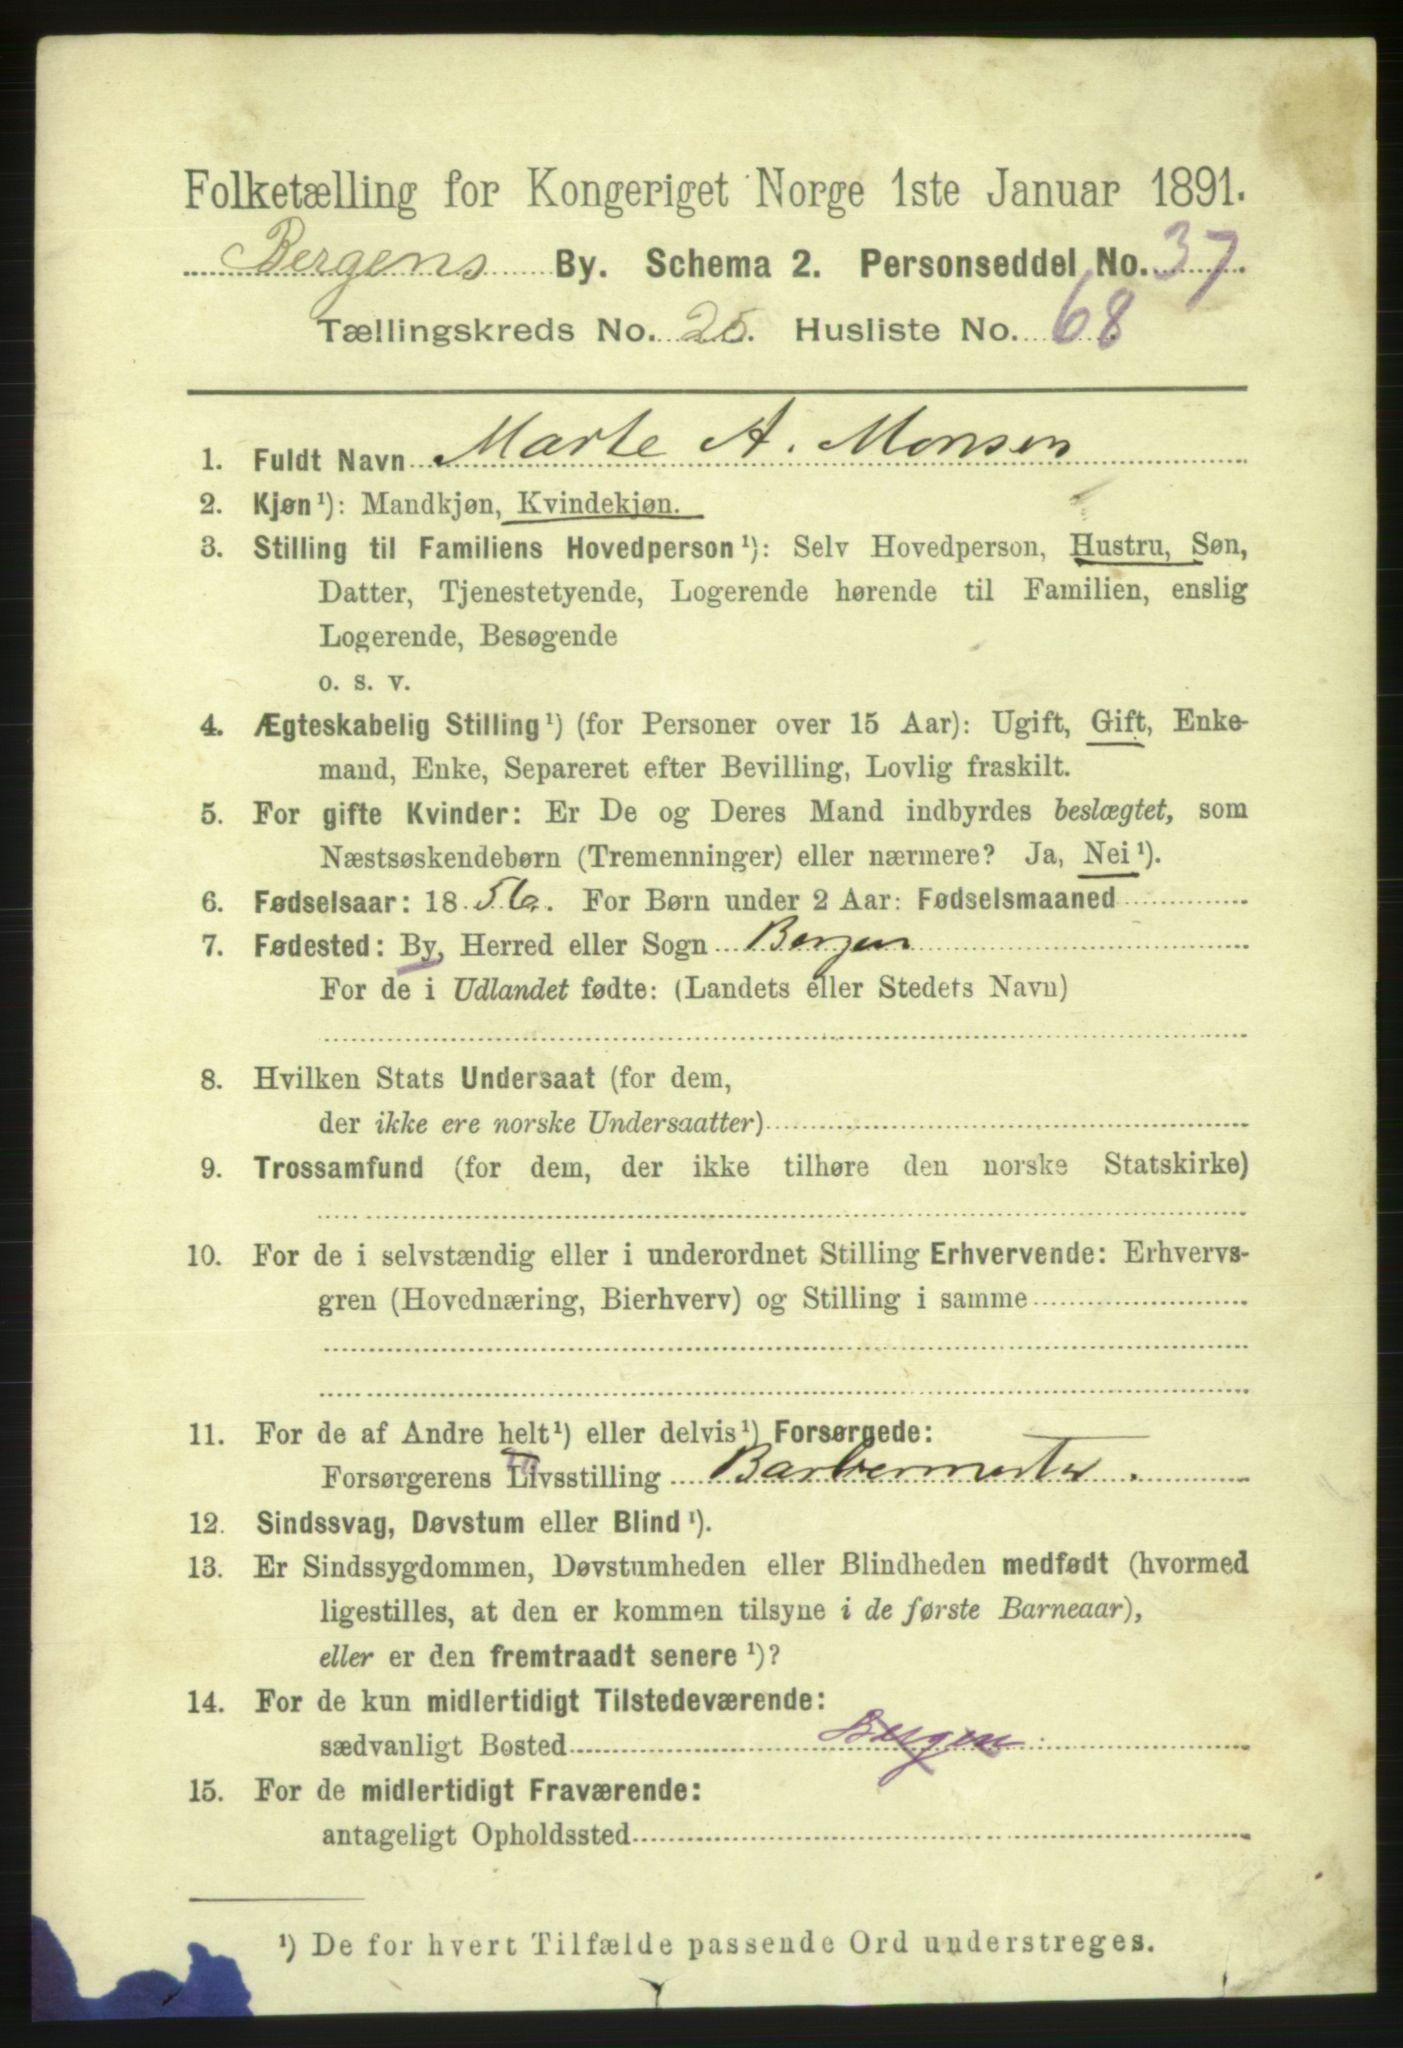 Folketælling for Kongeriget Norge 1ste Januar 1891.
Bergens By. Schema 2. Personseddel No. 37
Tællingskreds No. 25. Husliste No. 68
1. Fuldt Navn Marte A. Monsen
2. Kjøn¹): Mandkjøn, Kvindekjøn.
3. Stilling til Familiens Hovedperson¹): Selv Hovedperson, Hustru, Søn,
Datter, Tjenestetyende, Logerende hørende til Familien, enslig
Logerende, Besøgende
o. s. v.
4. Ægteskabelig Stilling¹) (for Personer over 15 Aar): Ugift, Gift, Enke-
mand, Enke, Separeret efter Bevilling, Lovlig fraskilt.
5. For gifte Kvinder: Er De og Deres Mand indbyrdes beslægtet, som
Næstsøskendebørn (Tremenninger) eller nærmere? Ja, Nei¹).
6. Fødselsaar: 1856. For Børn under 2 Aar: Fødselsmaaned
7. Fødested: By, Herred eller Sogn Bergen
For de i Udlandet fødte: (Landets eller Stedets Navn)
8. Hvilken Stats Undersaat (for dem,
der ikke ere norske Undersaatter)
9. Trossamfund (for dem, der ikke tilhøre den norske Statskirke)
10. For de i selvstændig eller i underordnet Stilling Erhvervende: Erhvervs-
gren (Hovednæring, Bierhverv) og Stilling i samme
11. For de af Andre helt¹) eller delvis¹) Forsørgede:
Forsørgerens Livsstilling Barbermester.
12. Sindssvag, Døvstum eller Blind¹).
13. Er Sindssygdommen, Døvstumheden eller Blindheden medfødt (hvormed
ligestilles, at den er kommen tilsyne i de første Barneaar),
eller er den fremtraadt senere¹)?
14. For de kun midlertidigt Tilstedeværende:
sædvanligt Bosted Bergen
15. For de midlertidigt Fraværende:
antageligt Opholdssted
¹) De for hvert Tilfælde passende Ord understreges.